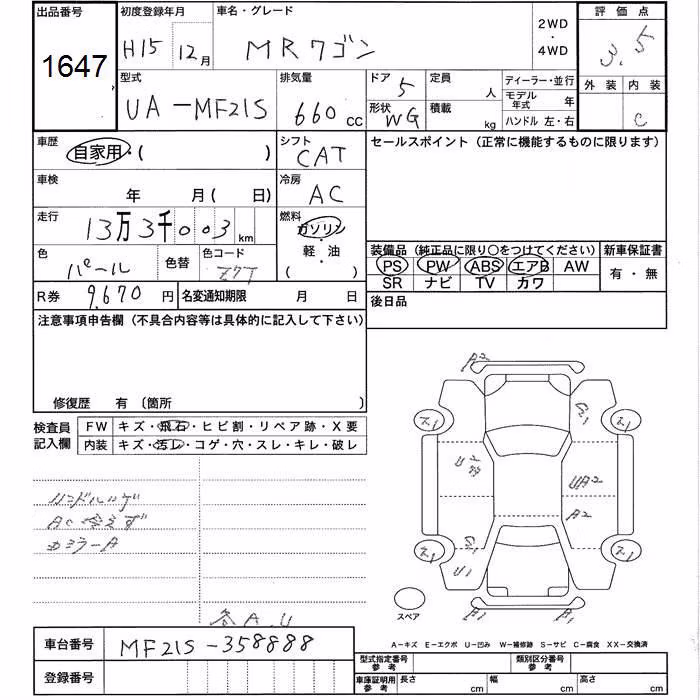 出品番号 初度登録年月 車名・グレード 2WD・4WD 評価点
1647 H15 12月 MRワゴン 3.5
型式 排気量 ドア 5 定員 人 ディーラー・並行 外装 内装
UA-MF21S 660cc 形状 WG 積載 kg モデル年式 年 C
ハンドル 左・右
車歴 自家用・( ) シフト CAT セールスポイント(正常に機能するものに限ります)
車検 年 月( 日) 冷房 AC
走行 13万3千003km 燃料 ガソリン・軽・油 ( )
色 パール 色替 色コード Z7T 装備品(純正品に限り○をつけてください) 新車保証書
PS PW ABS エアB AW 有・無
SR ナビ TV カワ
R券 9,670円 名変通知期限 月 日 後日品
注意事項申告欄(不具合内容等は具体的に記入して下さい)
修復歴 有 〔箇所 〕
検査員記入欄 FW キズ・飛石・ヒビ割・リペア跡・X要
内装 キズ・汚レ・コゲ・穴・スレ・キレ・破レ
ハンドルハゲ
AC冷えず
Dミラー A
A2
G1
U2
UA2
A2
G1
U1
B1
B1
スペア
A,U
A-キズ E-エクボ U-凹み W-補修跡 S-サビ C-腐食 XX-交換済
車台番号 MF21S-358888
型式指定番号 参考 類別区分番号 参考
登録番号 車庫証明用 参考 長さ cm 幅 cm 高さ cm